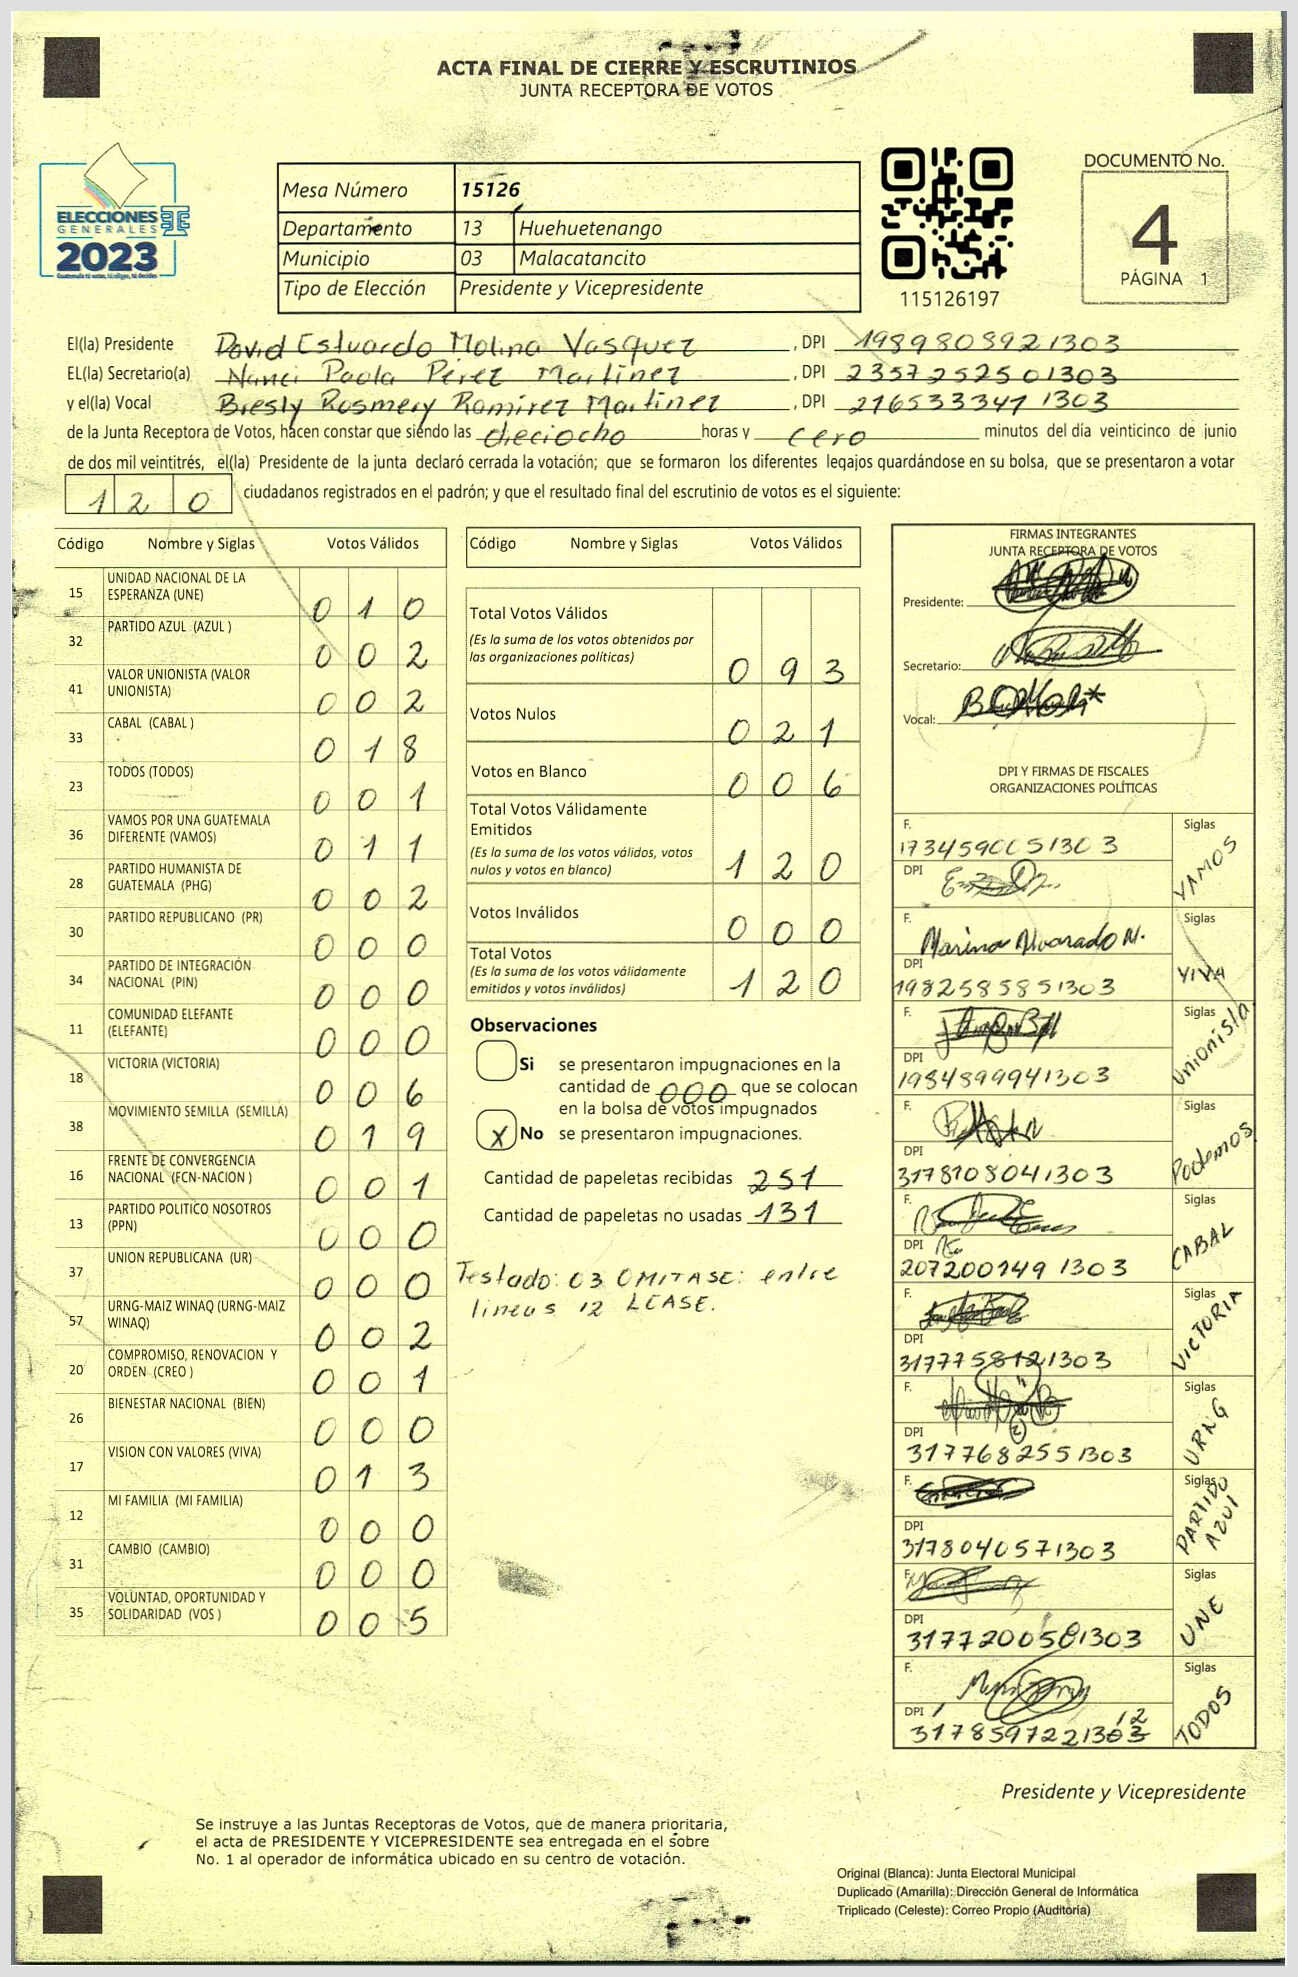 ACTA FINAL DE CIERRE Y ESCRUTINIOS
JUNTA RECEPTORA DE VOTOS
ELECCIONES
GENERALES
2023
Guatemala tú votas, tú eliges, tú decides
Mesa Número 15126
Departamento 13 Huehuetenango
Municipio 03 Malacatancito
Tipo de Elección Presidente y Vicepresidente
115126197
DOCUMENTO No.
4
PÁGINA 1
El(la) Presidente David Estuardo Molina Vasquez, DPI 1989809921303
EL(la) Secretario(a) Nanci Paola Pérez Martínez, DPI 2357252501303
y el(la) Vocal Bresly Rosmery Ramírez Martinez, DPI 2165333471303
de la Junta Receptora de Votos, hacen constar que siendo las dieciocho horas y cero minutos del día veinticinco de junio
de dos mil veintitrés, el(la) Presidente de la junta declaró cerrada la votación; que se formaron los diferentes legajos quardándose en su bolsa, que se presentaron a votar
120 ciudadanos registrados en el padrón; y que el resultado final del escrutinio de votos es el siguiente:
Código Nombre y Siglas Votos Válidos
15 UNIDAD NACIONAL DE LA ESPERANZA (UNE) 010
32 PARTIDO AZUL (AZUL ) 002
41 VALOR UNIONISTA (VALOR UNIONISTA) 002
33 CABAL (CABAL ) 018
23 TODOS (TODOS) 001
36 VAMOS POR UNA GUATEMALA DIFERENTE (VAMOS) 011
28 PARTIDO HUMANISTA DE GUATEMALA (PHG) 002
30 PARTIDO REPUBLICANO (PR) 000
34 PARTIDO DE INTEGRACIÓN NACIONAL (PIN) 000
11 COMUNIDAD ELEFANTE (ELEFANTE) 000
18 VICTORIA (VICTORIA) 006
38 MOVIMIENTO SEMILLA (SEMILLA) 019
16 FRENTE DE CONVERGENCIA NACIONAL (FCN-NACION ) 001
13 PARTIDO POLITICO NOSOTROS (PPN) 000
37 UNION REPUBLICANA (UR) 000
57 URNG-MAIZ WINAQ (URNG-MAIZ WINAQ) 002
20 COMPROMISO, RENOVACION Y ORDEN (CREO ) 001
26 BIENESTAR NACIONAL (BIEN) 000
17 VISION CON VALORES (VIVA) 013
12 MI FAMILIA (MI FAMILIA) 000
31 CAMBIO (CAMBIO) 000
35 VOLUNTAD, OPORTUNIDAD Y SOLIDARIDAD (VOS ) 005
Código Nombre y Siglas Votos Válidos
Total Votos Válidos
(Es la suma de los votos obtenidos por
las organizaciones políticas) 093
Votos Nulos 021
Votos en Blanco 006
Total Votos Válidamente
Emitidos
(Es la suma de los votos válidos, votos
nulos y votos en blanco) 120
Votos Inválidos 000
Total Votos
(Es la suma de los votos válidamente
emitidos y votos inválidos) 120
Observaciones
Si se presentaron impugnaciones en la
cantidad de 000 que se colocan
en la bolsa de votos impugnados
X No se presentaron impugnaciones.
Cantidad de papeletas recibidas 251
Cantidad de papeletas no usadas 131
Testado: 03 OMITASE: entre
lineas 12 LEASE.
FIRMAS INTEGRANTES
JUNTA RECEPTORA DE VOTOS
Presidente:
Secretario:
Vocal:
DPI Y FIRMAS DE FISCALES
ORGANIZACIONES POLÍTICAS
F. Siglas
1734590051303
DPI VAMOS
F. Marina Alvarado M. Siglas
DPI VIVA
1982585851303
F. Siglas
DPI Unionista
1984899941303
F. Siglas
DPI Podemos
3178108041303
F. Siglas
DPI CABAL
2072001491303
F. Siglas
DPI VICTORIA
3177758121303
F. Siglas
DPI URNG
3177682551303
F. Siglas
DPI PARTIDO AZUL
3178040571303
F. Siglas
DPI UNE
3177200581303
F. Siglas
DPI TODOS
12
3178597221303
Presidente y Vicepresidente
Se instruye a las Juntas Receptoras de Votos, que de manera prioritaria,
el acta de PRESIDENTE Y VICEPRESIDENTE sea entregada en el sobre
No. 1 al operador de informática ubicado en su centro de votación.
Original (Blanca): Junta Electoral Municipal
Duplicado (Amarilla): Dirección General de Informática
Triplicado (Celeste): Correo Propio (Auditoría)